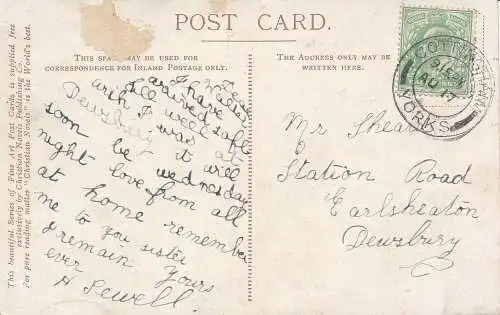 POST CARD.
THIS SPACE MAY BE USED FOR
CORRESPONDENCE FOR INLAND POSTAGE ONLY.
THE ADDRESS ONLY MAY BE
WRITTEN HERE.
This beautiful Series of Fine Art Post Cards is supplied free
exclusively by Christian Novels Publishing Co.
For pure reading matter "Christian Novels" is the World's best.
Dear
I
arrived safe
all well
I was at
Dewsbury it will
soon be wednesday
night love from all
at home remember
me to you sister
I remain yours
ever
A Sewell.
YORKS
Mr Sheard
Station Road
Earlsheaton
Dewsbury